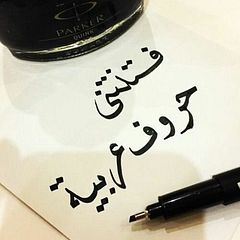 PARKER
QUINK
فتنتنى
حروف عربية